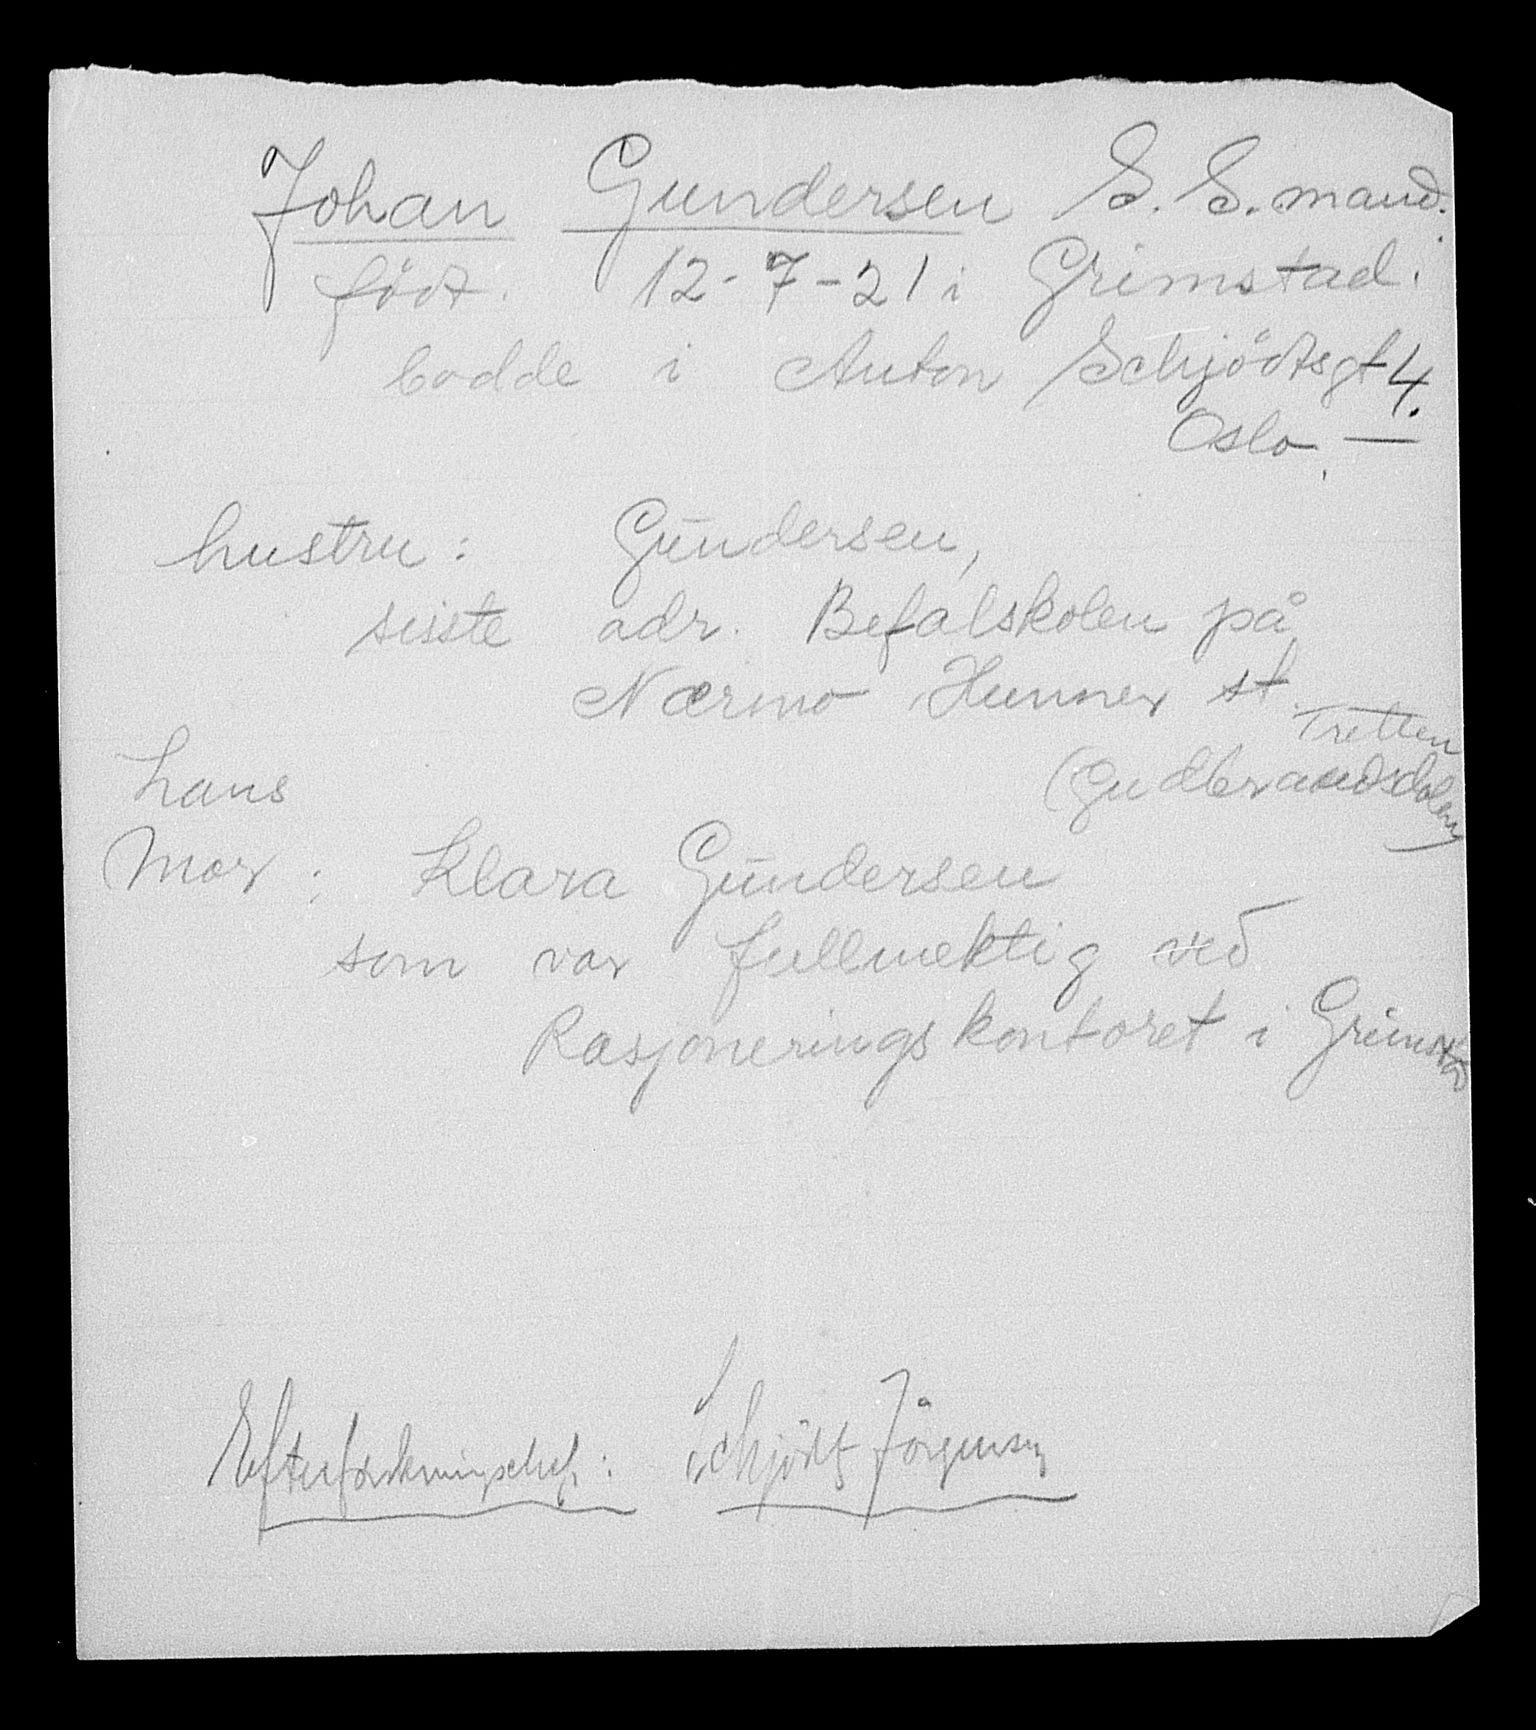 Johan Gundersen S. S. mand.
född. 12-7-21 i Grimstad.
bodde i Anton Schjödtsgt 4.
Oslo. —
hustru: Gundersen,
sisste adr. Befalskolen på
Nærmo Hunner st.
Tretten
(Gudbrandsdalen)
hans
Mor: Klara Gundersen
som var fullmektig ved
Rasjoneringskontoret i Grimstad
Schjödt Jörgensen